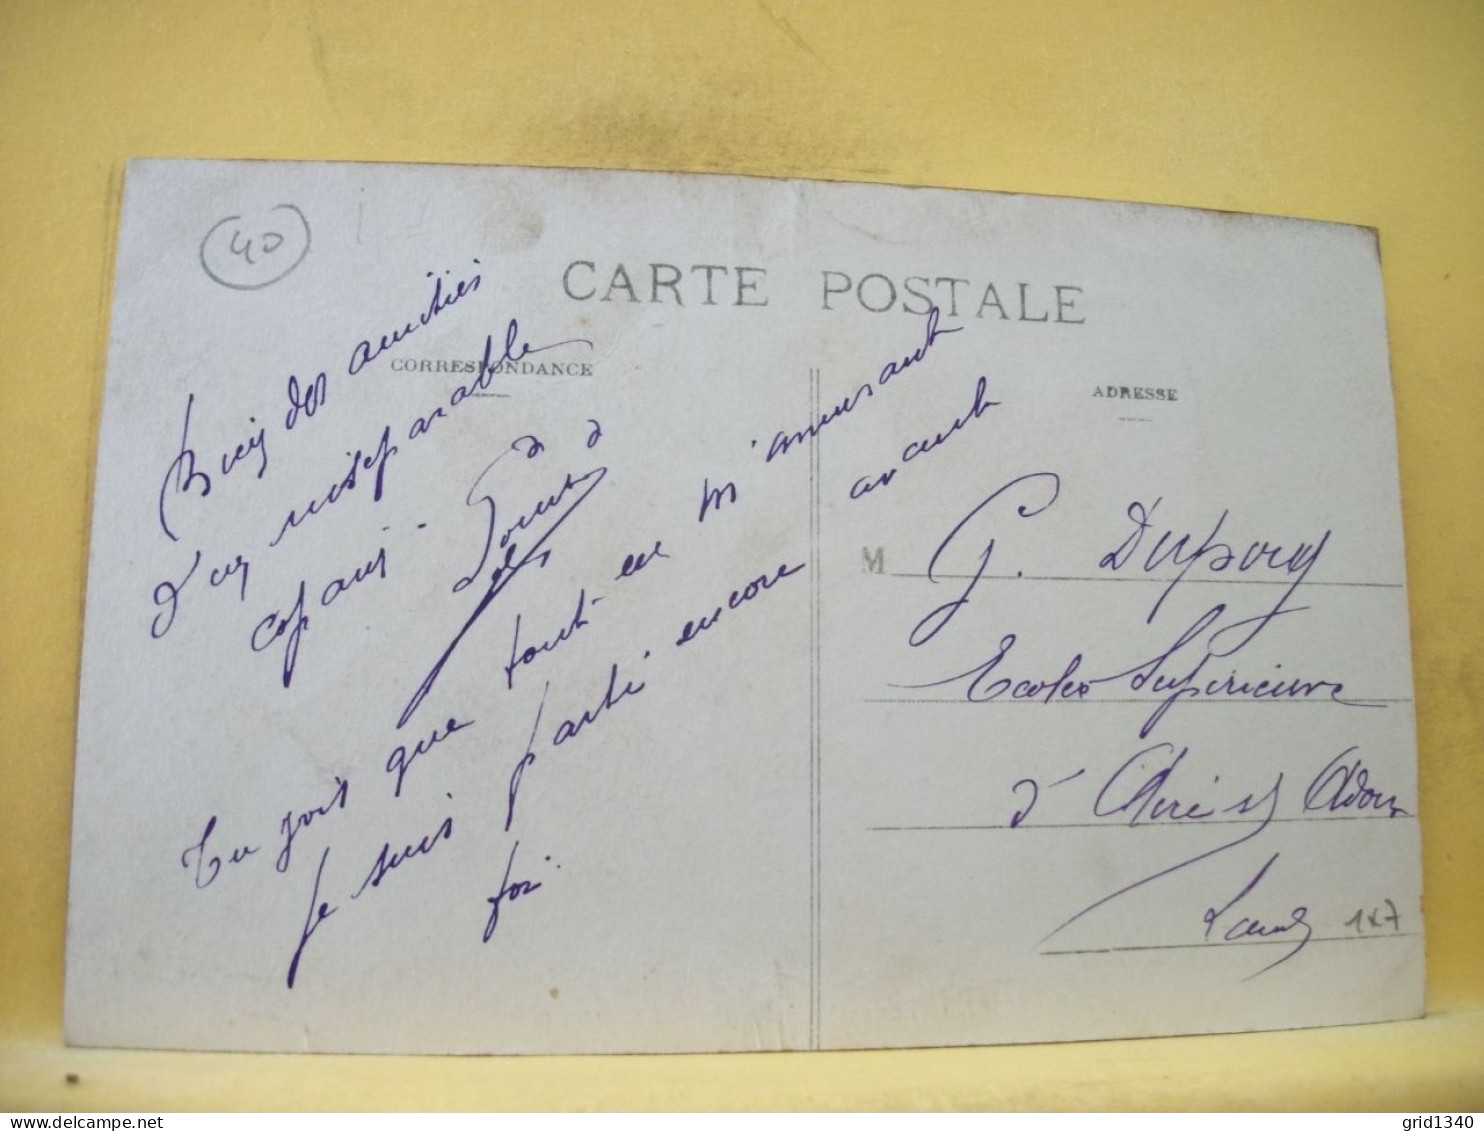 40
CARTE POSTALE
CORRESPONDANCE
ADRESSE
Bien des amitiés
d'un inséparable
copain.
Tu vois que tout en m'amusant
je suis parti encore avant
toi.
M G. Dupouy
Ecoles Supérieure
d'Aire s/ Adour
Landes
1x7
delcampe.net
grid1340